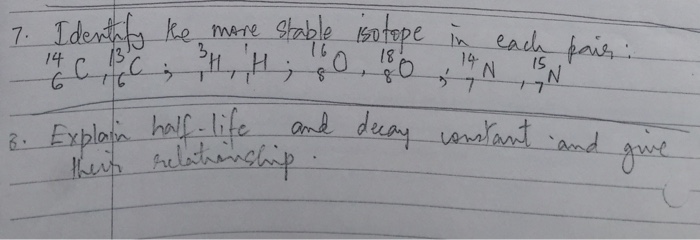 7. Identify the more stable isotope in each pair:
¹⁴₆C, ¹³₆C ; ³₁H, ¹₁H ; ¹⁶₈O, ¹⁸₈O ; ¹⁴₇N, ¹⁵₇N
8. Explain half-life and decay constant and give
their relationship.